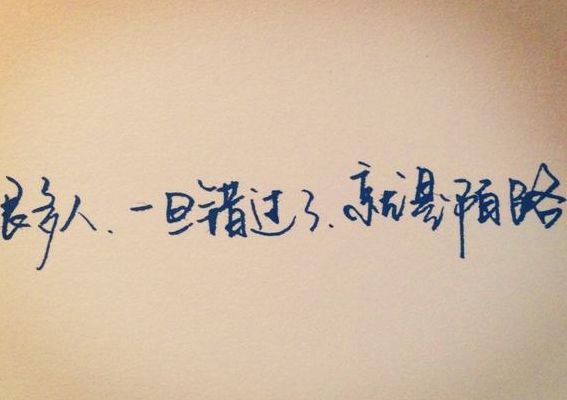 很多人、一旦错过了、就是陌路